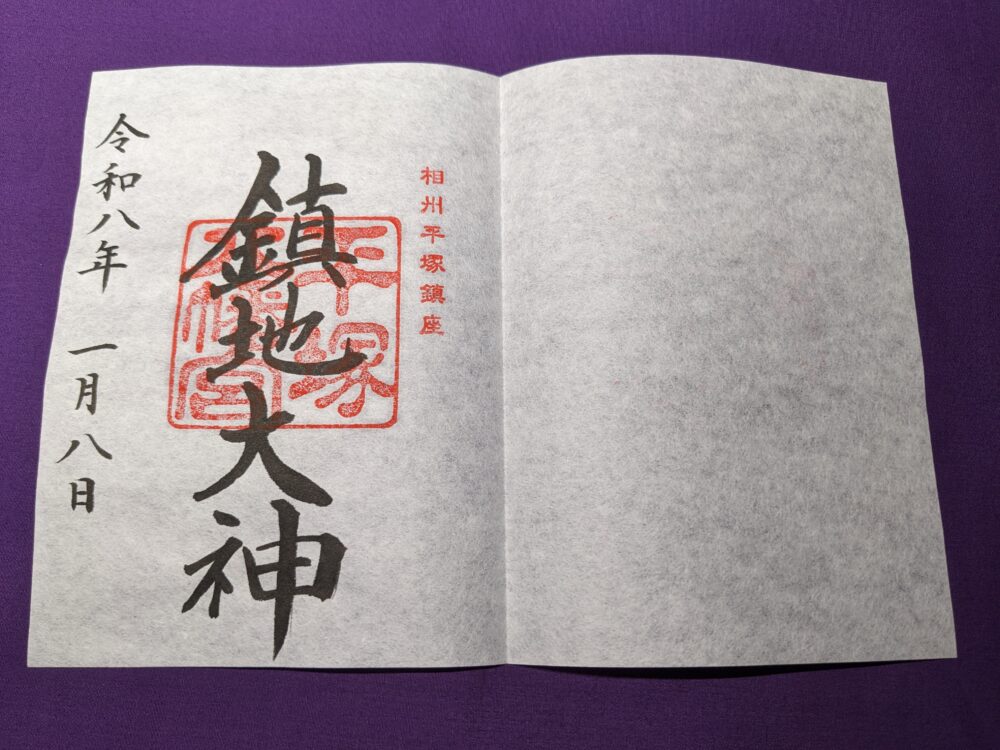 相州平塚鎮座
鎮地大神
平塚
八幡宮
令和八年 一月八日